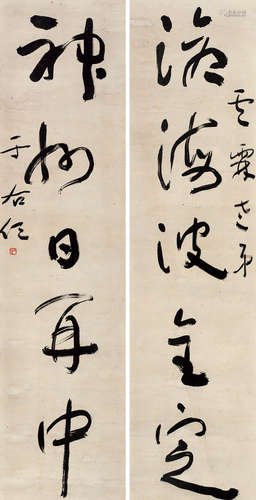 雲霖老弟
滄海波全定
神州日再中
于右任